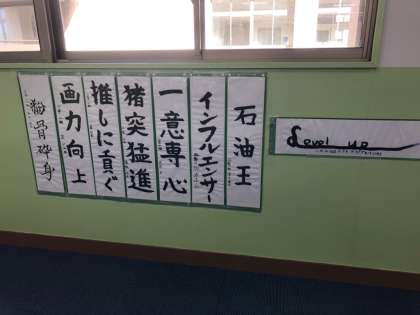 石油王
インフルエンサー
一意専心
猪突猛進
推しに貢ぐ
画力向上
粉骨砕身
Level up